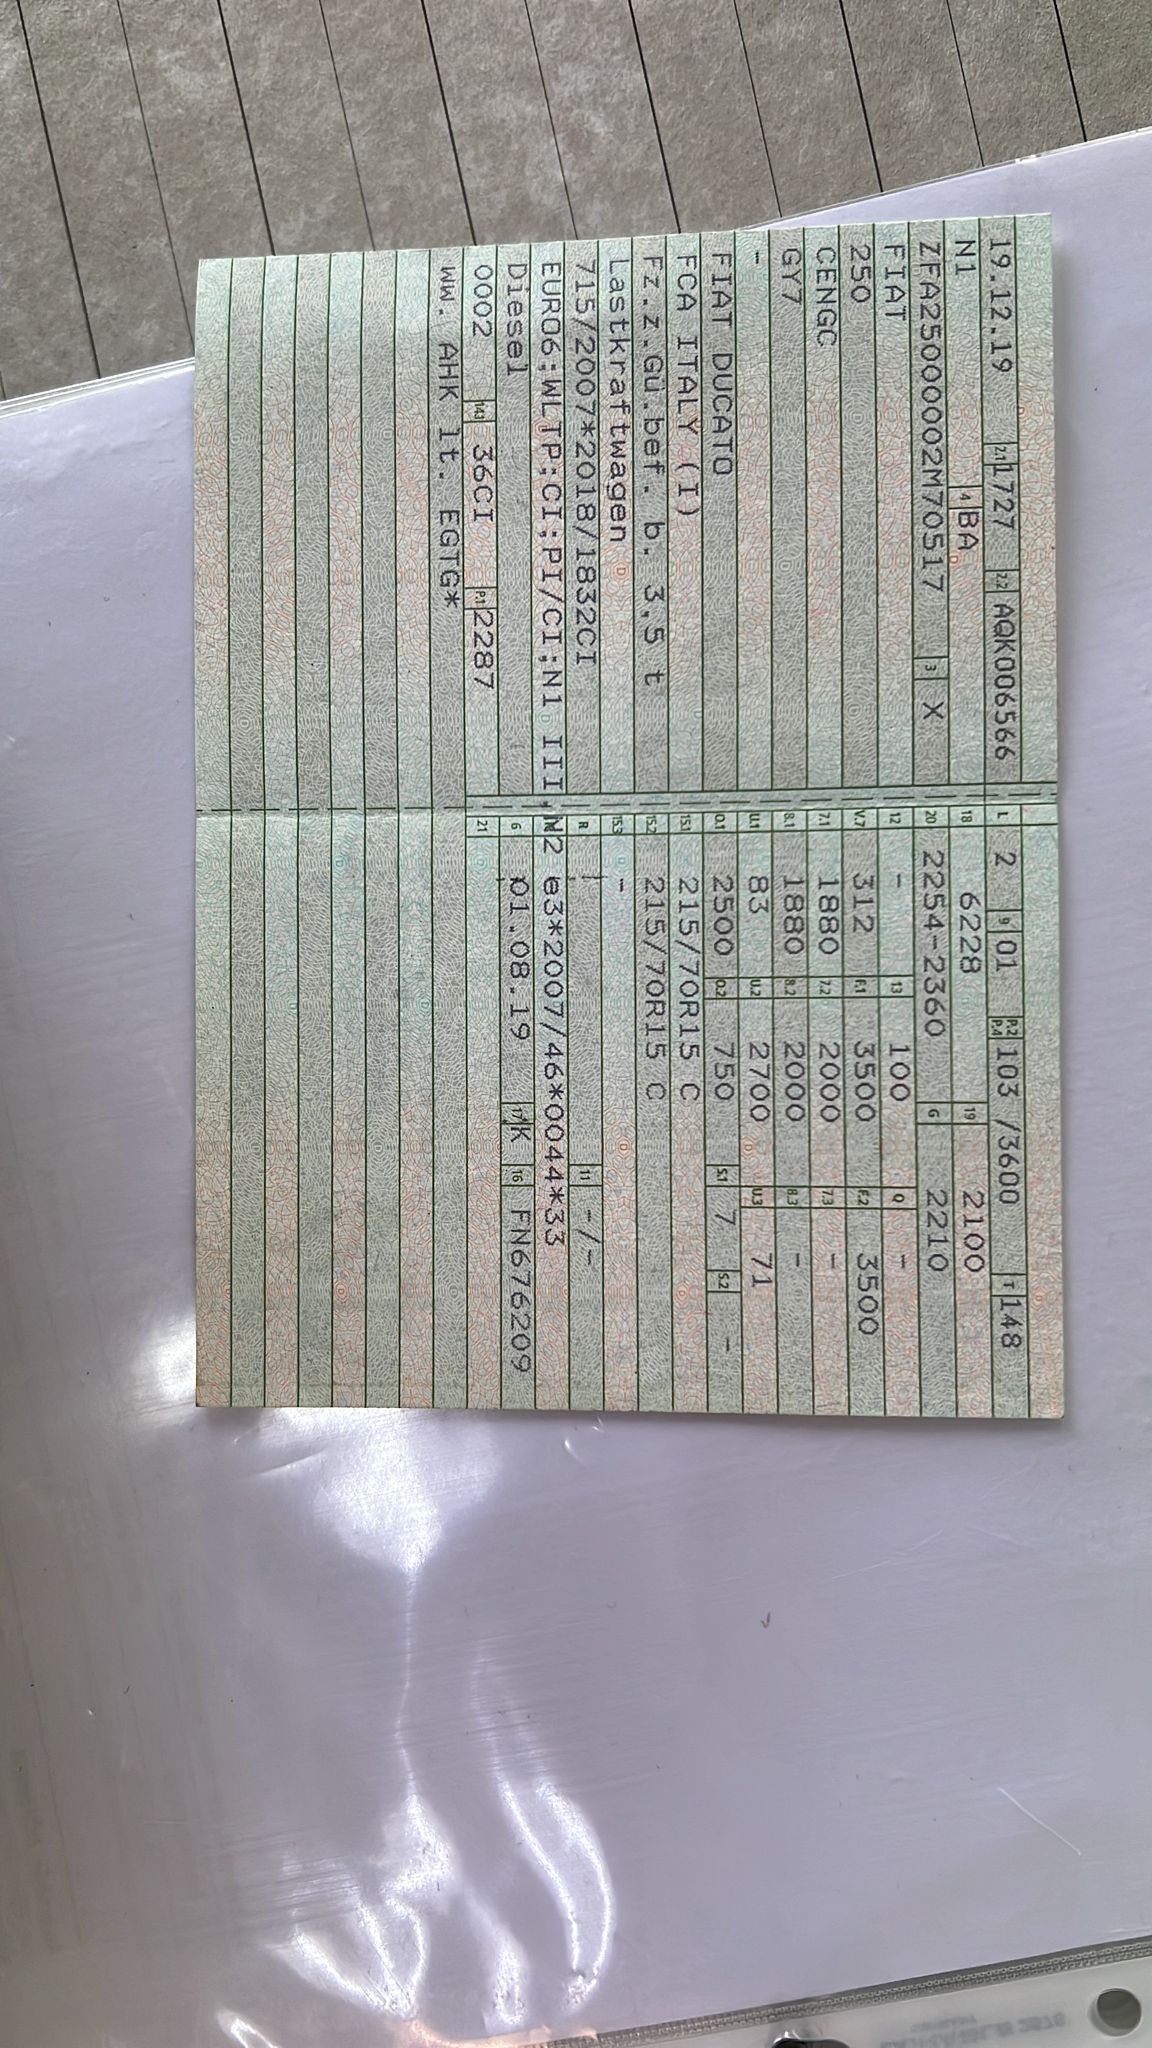 19.12.19 2.1 1727 2.2 AQK006566 L 2 9 01 P.2 P.4 103 /3600 T 148
N1 4 BA 18 6228 19 2100
ZFA25000002M70517 3 X 20 2254-2360 G 2210
FIAT 12 - 13 100 Q -
250 V.7 312 F.1 3500 F.2 3500
CENGC 7.1 1880 7.2 2000 7.3 -
GY7 8.1 1880 8.2 2000 8.3 -
- U.1 83 U.2 2700 U.3 71
FIAT DUCATO O.1 2500 O.2 750 S.1 7 S.2 -
FCA ITALY (I) 15.1 215/70R15 C
Fz.z.Gü.bef. b. 3,5 t 15.2 215/70R15 C
Lastkraftwagen 15.3 -
715/2007*2018/1832CI R 11 -/-
EURO6;WLTP;CI;PI/CI;N1 III,N2 e3*2007/46*0044*33
Diesel 6 01.08.19 17 K 16 FN676209
0002 14.1 36CI P.1 2287 21
WW. AHK lt. EGTG*